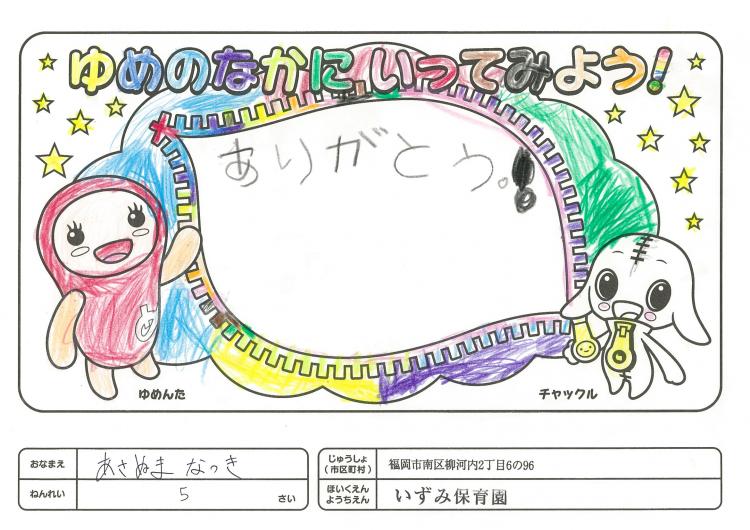 ゆめのなかにいってみよう!
ありがとう。!
ゆめんた
チャックル
おなまえ あさぬま なつき
ねんれい 5 さい
じゅうしょ(市区町村) 福岡市南区柳河内2丁目6の96
ほいくえん ようちえん いずみ保育園